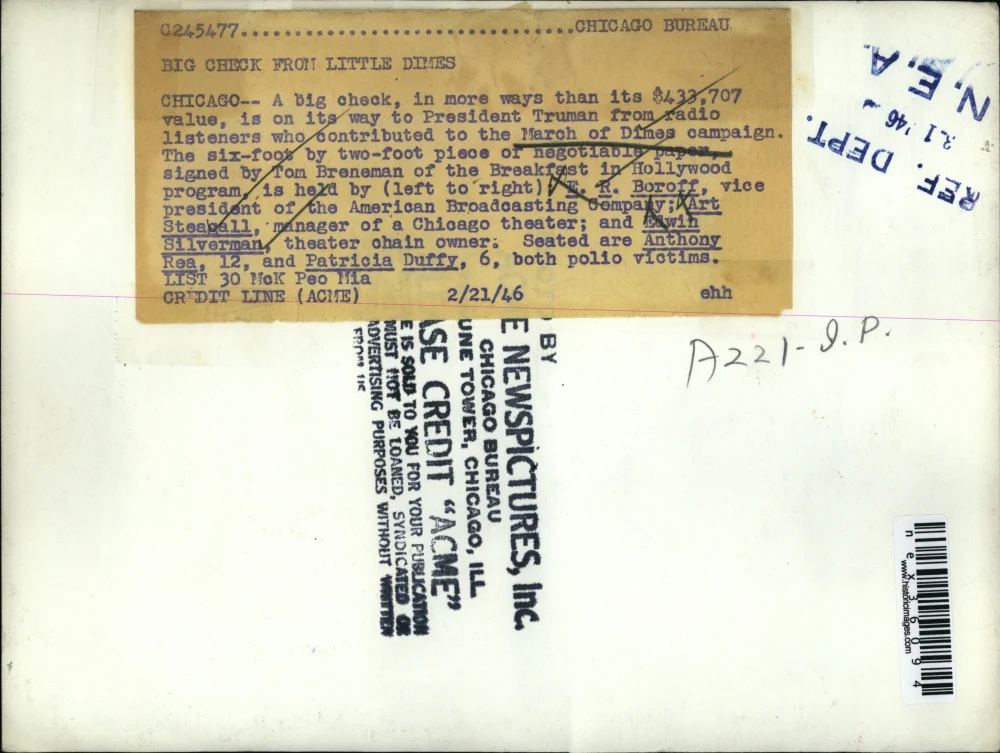 C245477................................CHICAGO BUREAU
BIG CHECK FROM LITTLE DIMES
CHICAGO-- A big check, in more ways than its $433,707
value, is on its way to President Truman from radio
listeners who contributed to the March of Dimes campaign.
The six-foot by two-foot piece of negotiable paper,
signed by Tom Breneman of the Breakfast in Hollywood
program, is held by (left to right) E. R. Boroff, vice
president of the American Broadcasting Company; Art
Steagall, manager of a Chicago theater; and Edwin
Silverman, theater chain owner. Seated are Anthony
Rea, 12, and Patricia Duffy, 6, both polio victims.
LIST 30 McK Peo Mia
CREDIT LINE (ACME) 2/21/46 ehh
REF. DEPT.
'46
N.E.A.
A221-I.P.
BY
E NEWSPICTURES, Inc.
CHICAGO BUREAU
UNE TOWER, CHICAGO, ILL.
ASE CREDIT "ACME"
E IS SOLD TO YOU FOR YOUR PUBLICATION
MUST NOT BE LOANED, SYNDICATED OR
ADVERTISING PURPOSES WITHOUT WRITTEN
FROM US
nex36094
www.historicimages.com